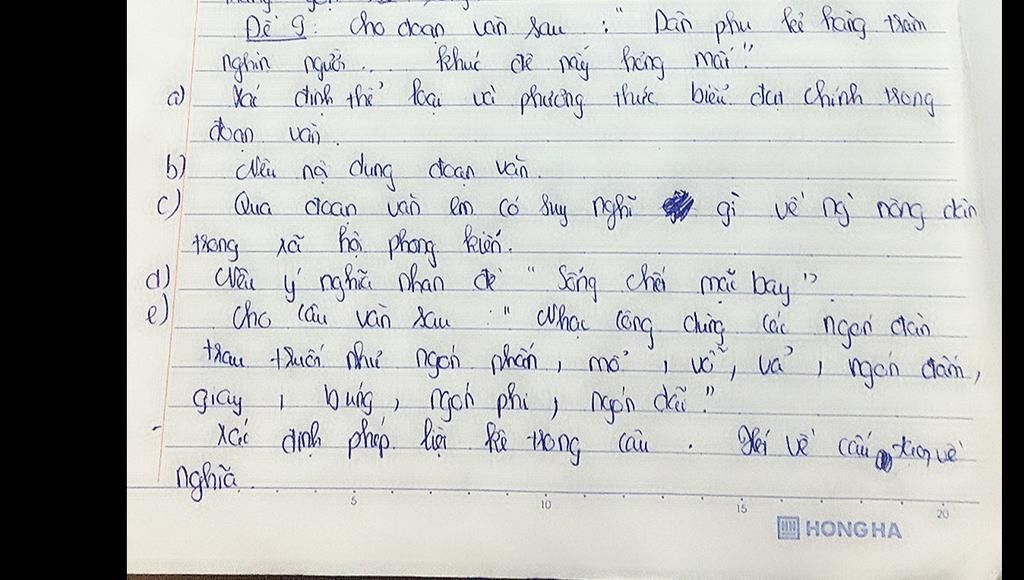 Đề 9: Cho đoạn văn sau: " Dân phu kể hàng trăm
nghìn người... khúc đê này hỏng mất"
a) Xác định thể loại và phương thức biểu đạt chính trong
đoạn văn.
b) Nêu nộ dung đoạn văn.
c) Qua đoạn văn em có suy nghĩ gì về ng nông dân
trong xã hội phong kiến.
d) Nêu ý nghĩa nhan đề " Sống chết mặc bay"
e) Cho câu văn sau: " Nhạc công dùng các ngón đàn
trau truốt như ngón phấn, mổ, vỗ, vả, ngón đấm,
giay, búng, ngón phi, ngón dãi."
- Xác định phép liệt kê trong câu. Xét về cấu tạo, về
nghĩa.
5 10 15 20
HONG HA